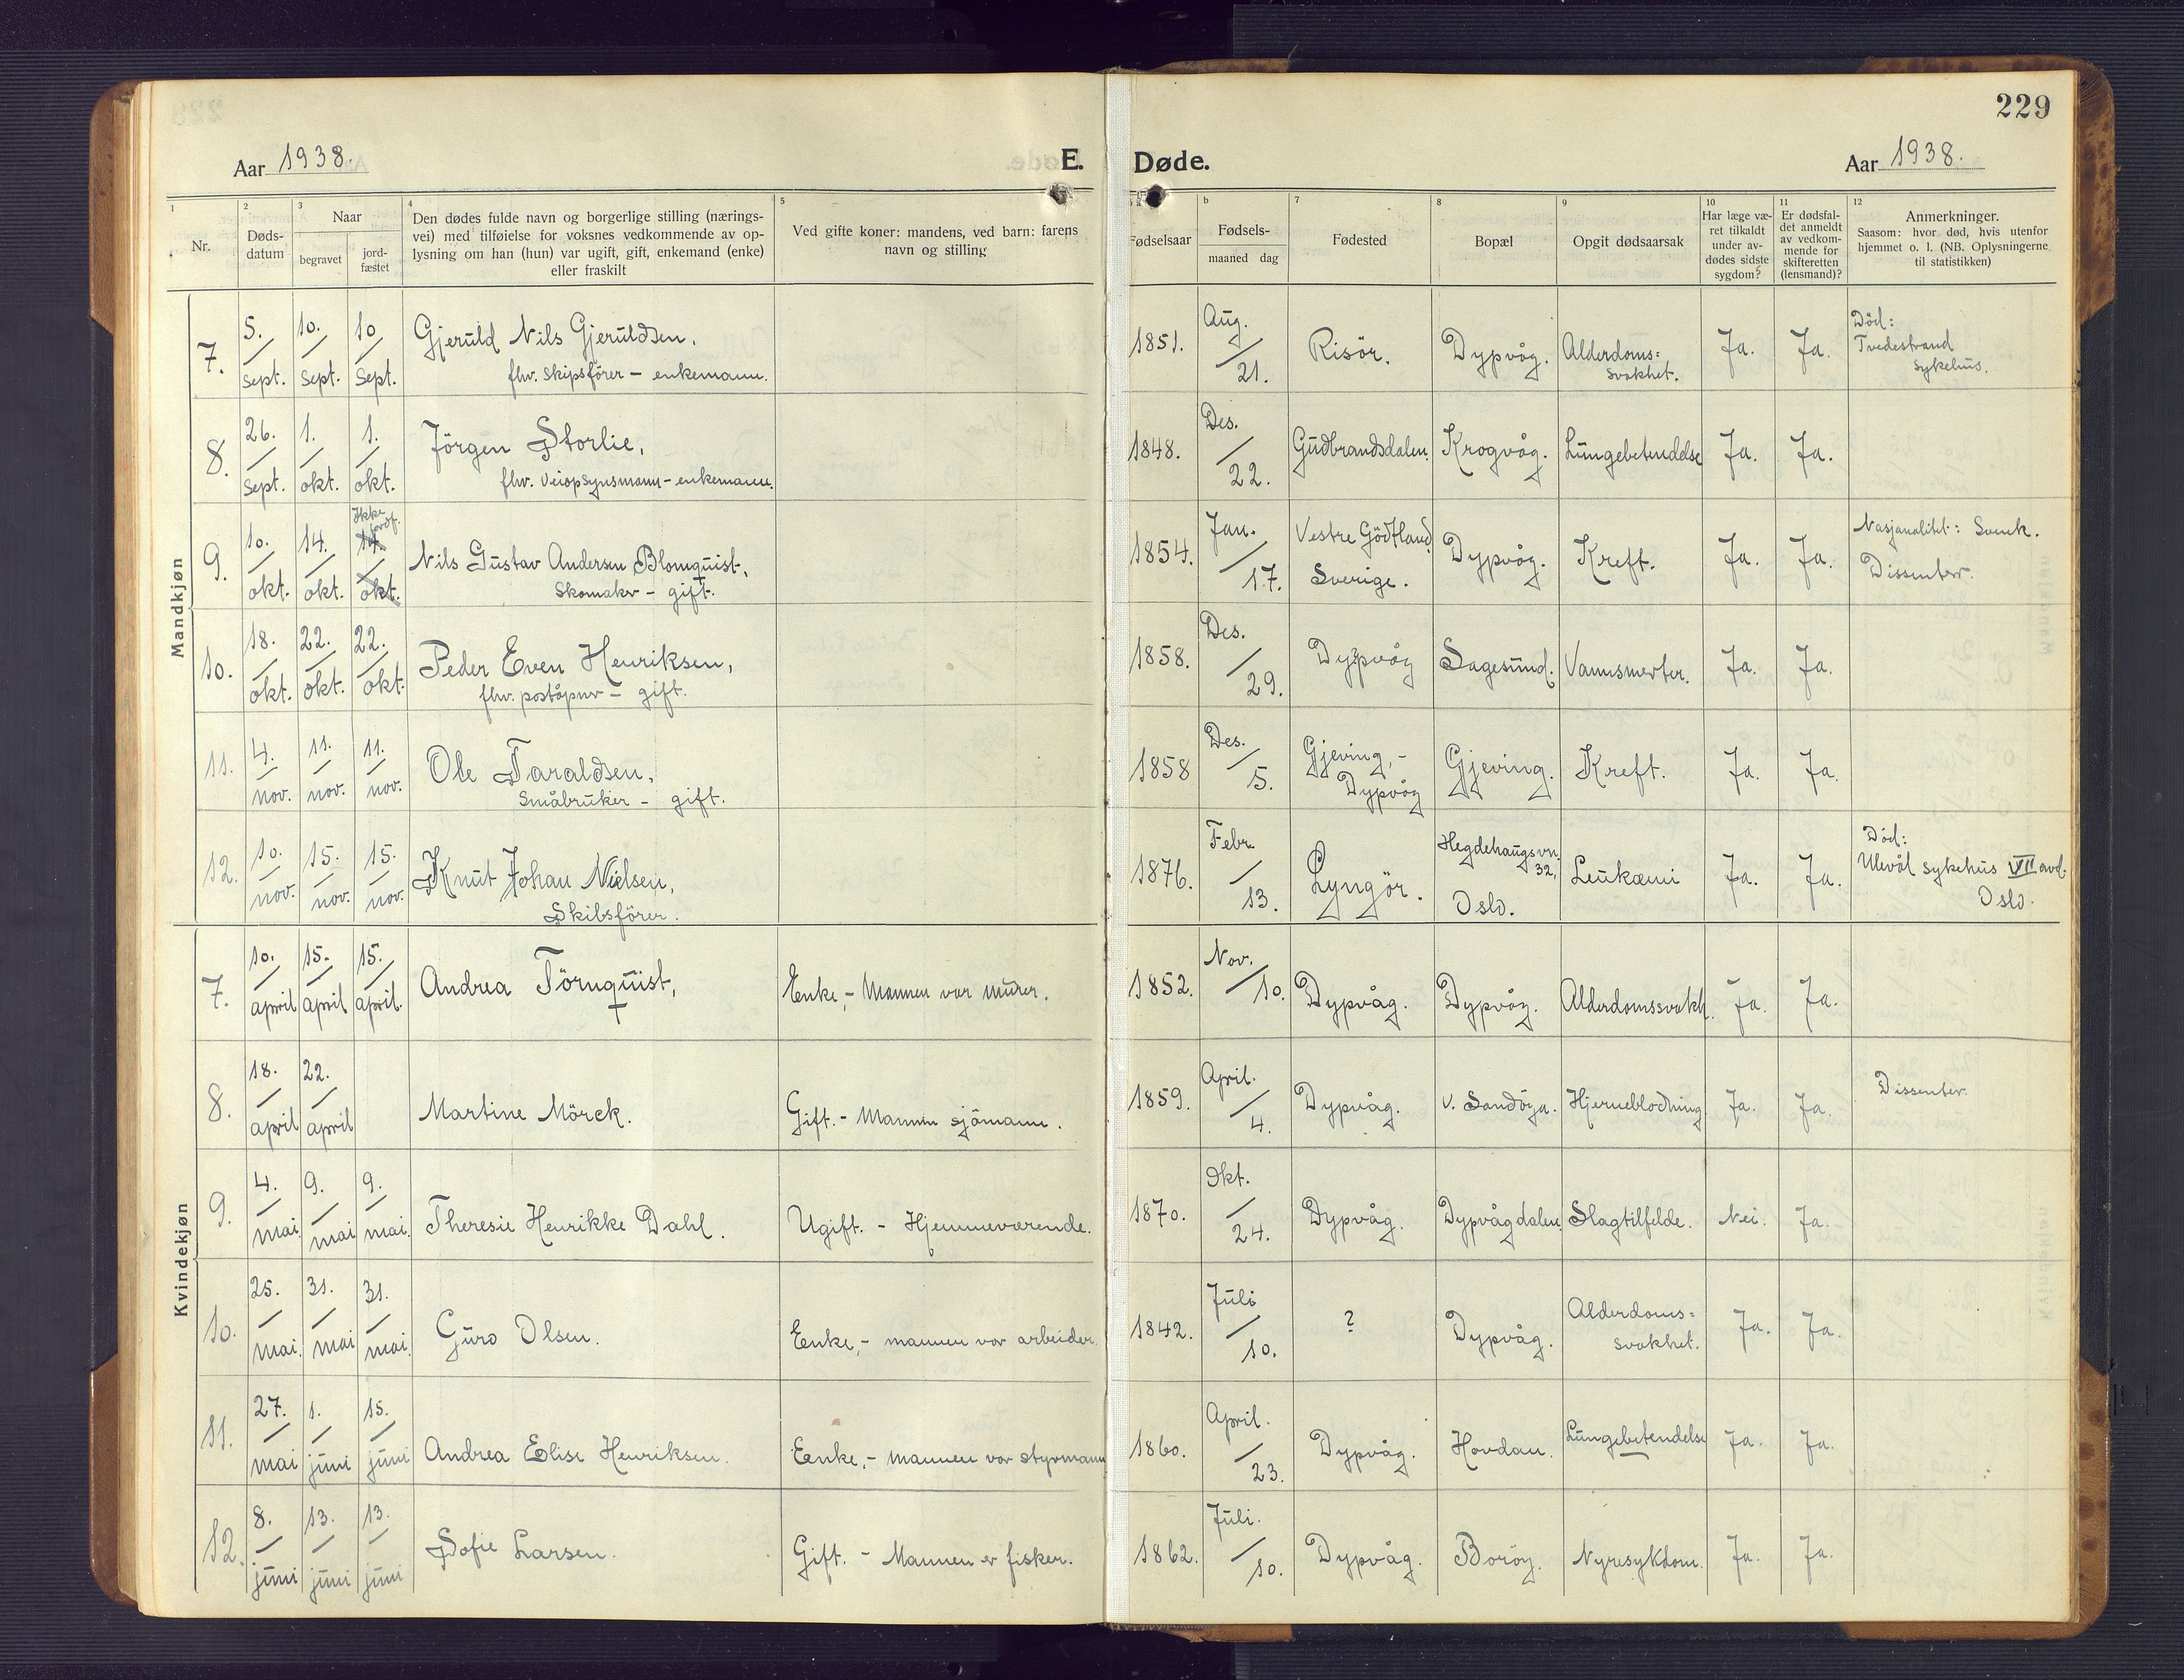 229
Aar 1938. E. Døde. Aar 1938.
1 Nr.
2 Døds-datum
3 Naar begravet jord-fæstet
4 Den dødes fulde navn og borgerlige stilling (nærings-
vei) med tilføielse for voksnes vedkommende av op-
lysning om han (hun) var ugift, gift, enkemand (enke)
eller fraskilt
5 Ved gifte koner: mandens, ved barn: farens
navn og stilling
Fødselsaar
b Fødsels-
maaned dag
7 Fødested
8 Bopæl
9 Opgit dødsaarsak
10 Har læge væ-
ret tilkaldt
under av-
dødes sidste
sygdom?
11 Er dødsfal-
det anmeldt
av vedkom-
mende for
skifteretten
(lensmand)?
12 Anmerkninger.
Saasom: hvor død, hvis utenfor
hjemmet o. l. (NB. Oplysningerne
til statistikken)
Mandkjøn
7. 5./Sept. 10./Sept. 10/Sept. Gjeruld Nils Gjeruldsen,
fhv. Skipsförer – enkemann.
1851. Aug./21. Risör. Dypvåg. Alderdoms=
svakhet. Ja. Ja. Död:
Tvedestrand
Sykehus.
8. 26./Sept. 1./okt. 1./okt. Jörgen Storlie,
fhv. Veiopsynsmann – enkemann.
1848. Des./22. Gudbrandsdalen. Krogvåg. Lungebetendelse Ja. Ja.
9. 10./okt. 14./okt. Ikke jordf. 14./okt. Nils Gustav Andersen Blomquist,
Skomaker – gift.
1854. Jan./17. Vestre Götland
Sverige. Dypvåg. Kreft. Ja. Ja. Nasjonalitet: Svensk.
Dissenter.
10. 18./okt. 22./okt. 22./okt. Peder Even Henriksen,
fhv. poståpner – gift.
1858. Des./29. Dypvåg Sagesund. Vannsmerter. Ja. Ja.
11. 4./nov. 11./nov. 11./nov. Ole Taraldsen,
Småbruker – gift.
1858 Des./5. Gjeving,-
Dypvåg Gjeving. Kreft. Ja. Ja.
12. 10./nov. 15./nov. 15./nov. Knut Johan Nielsen,
Skibsförer.
1876. Febr./13. Lyngör. Hegdehaugsvn.
32,
Oslo. Leukæmi Ja. Ja. Död:
Ulevål sykehus VII avd.
Oslo.
Kvindekjøn
7. 10./april 15./april 15./april. Andrea Törnquist, Enke,- Mannen var murer.
1852. Nov./10. Dypvåg. Dypvåg. Alderdomssvakh. Ja. Ja.
8. 18./april 22./april Martine Mörck. Gift. - Mannen sjömann.
1859. April./4. Dypvåg. V. Sandöya. Hjerneblödning. Ja. Ja. Dissenter.
9. 4./mai. 9./mai 9./mai. Theresie Henrikke Dahl. Ugift. - Hjemmeværende.
1870. Okt./24. Dypvåg. Dypvågdalen. Slagtilfelde. Nei. Ja.
10. 25./mai. 31./mai 31./mai. Guro Olsen. Enke,- mannen var arbeider.
1842. Juli/10. ? Dypvåg. Alderdoms=
svakhet. Ja. Ja.
11. 27./mai 1./juni 15./juni Andrea Elise Henriksen. Enke,- mannen var styrmann
1860. April./23. Dypvåg. Hovdan. Lungebetendelse Ja. Ja.
12. 8./juni 13./juni 13./juni Sofie Larsen. Gift. - Mannen er fisker.
1862. Juli./10. Dypvåg. Boröy. Nyresykdom. Ja. Ja.